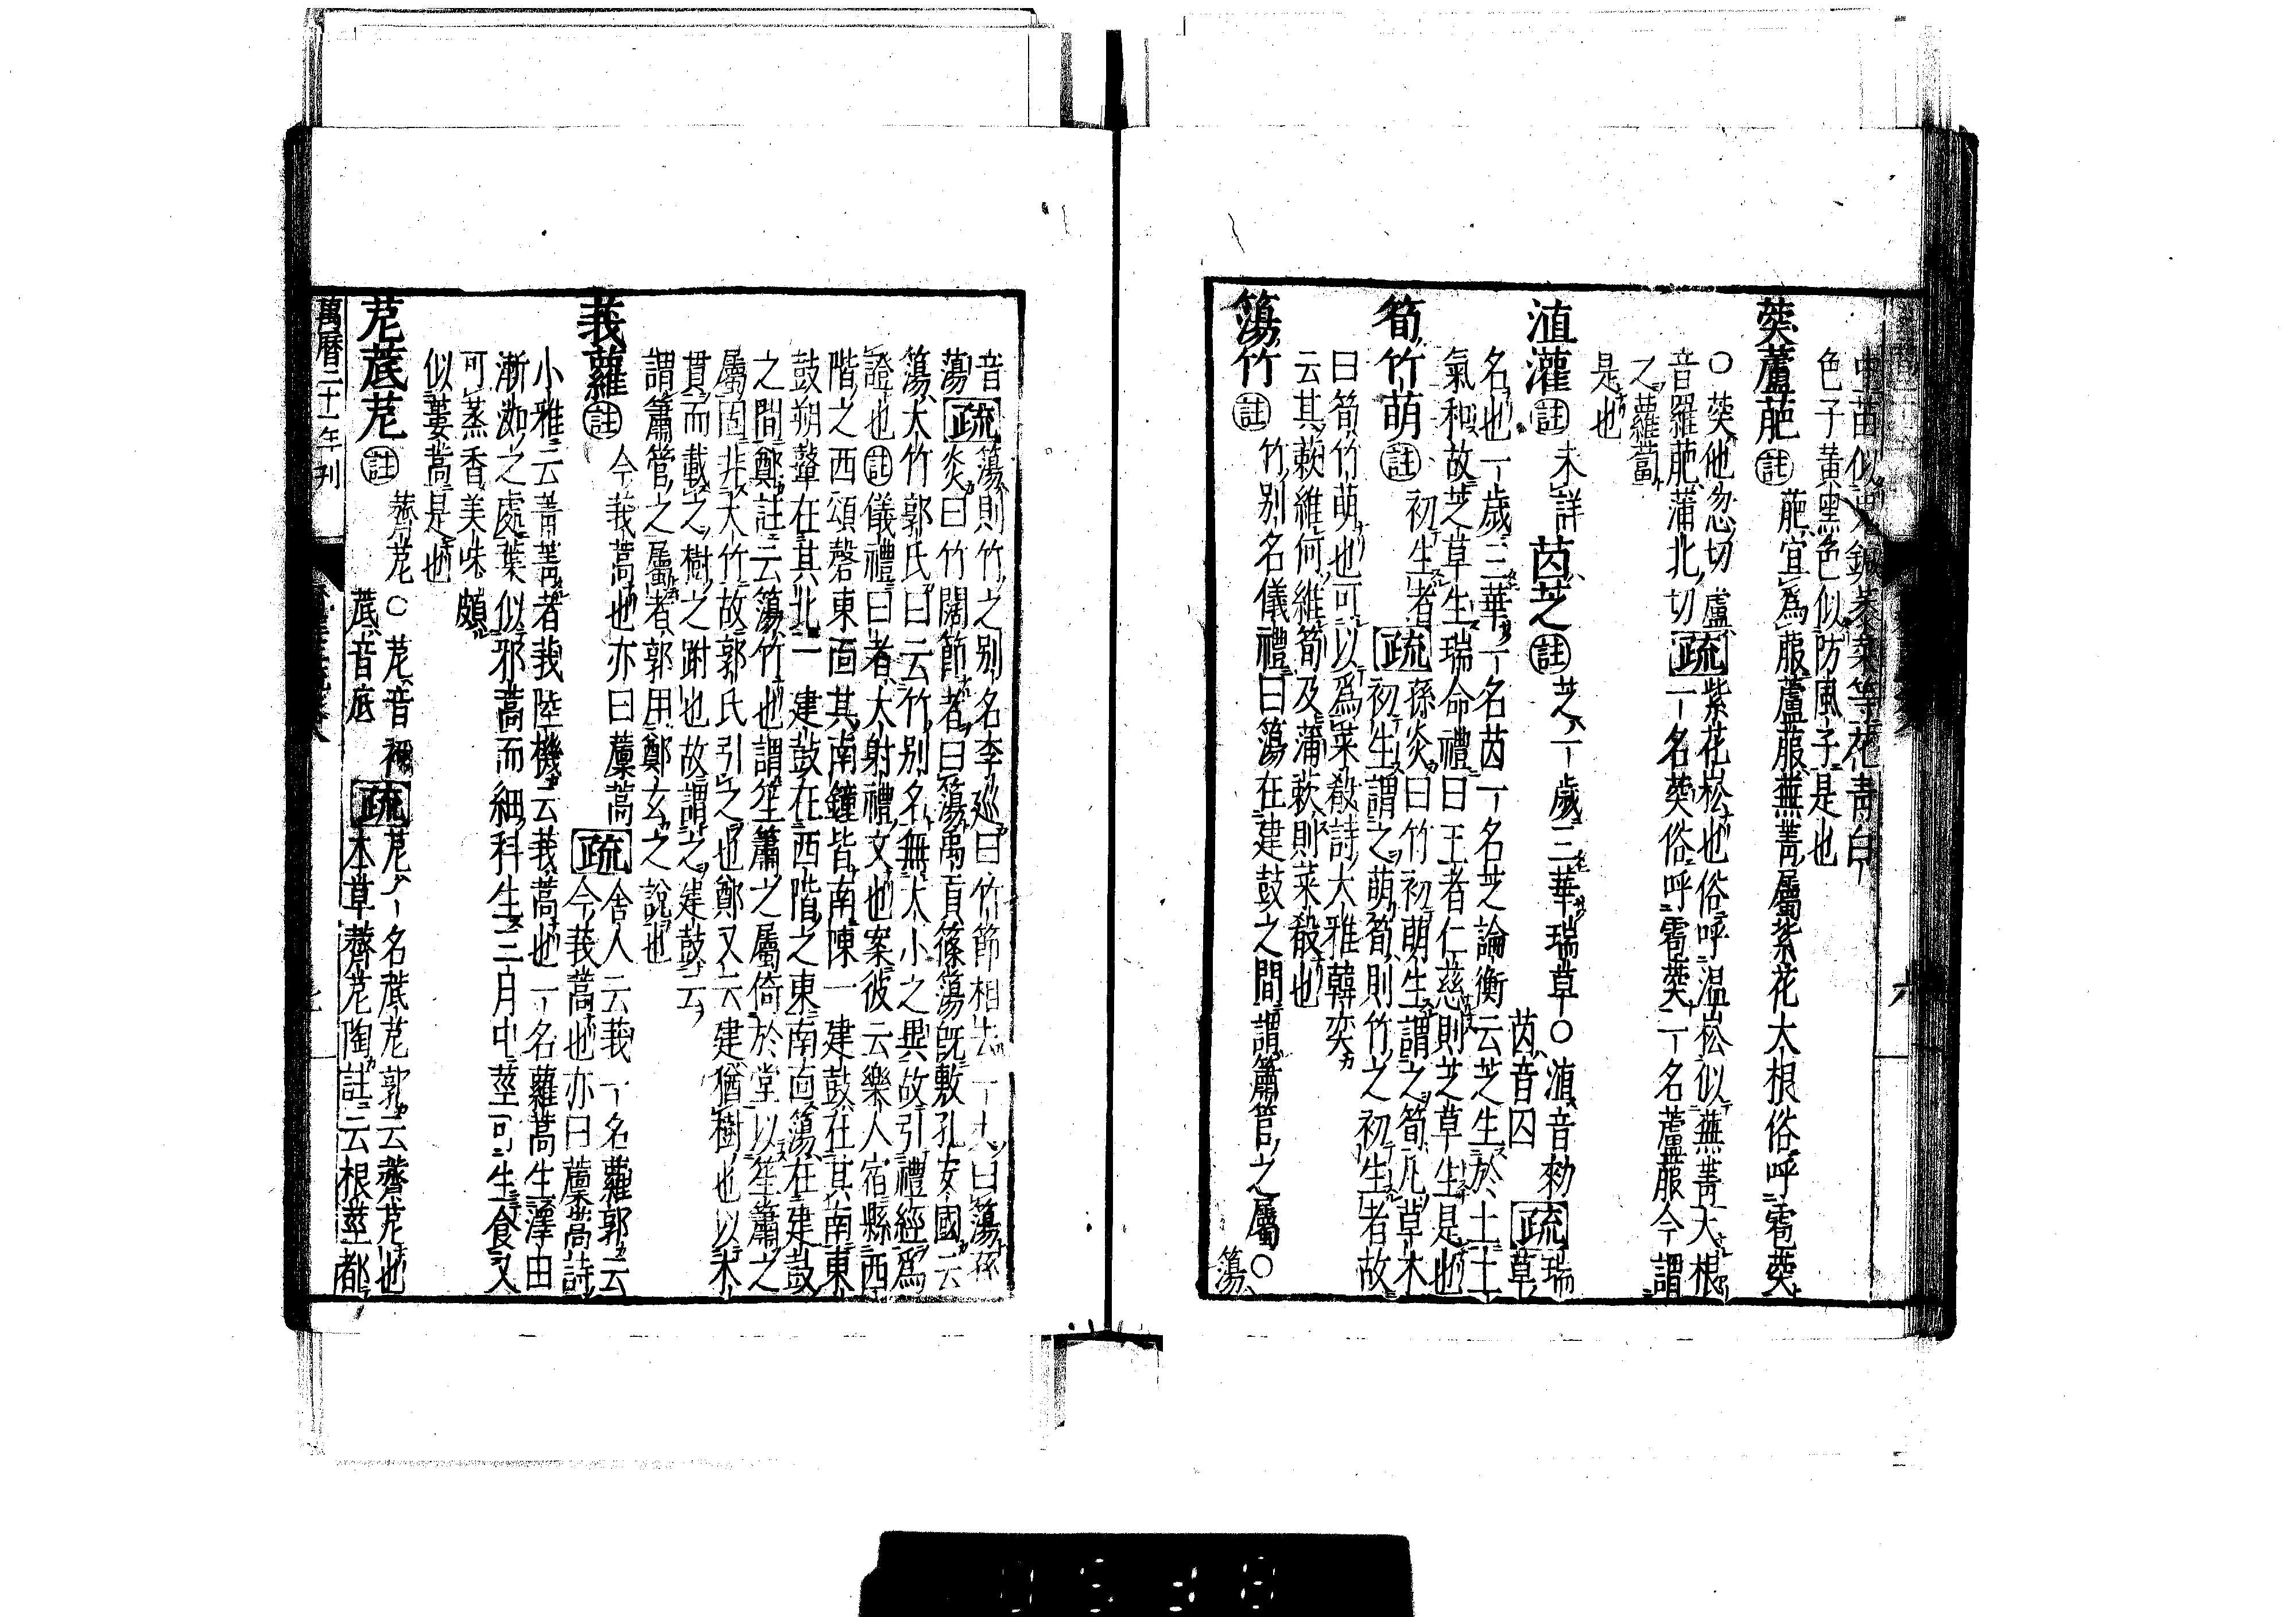 中苗似貝鍼峯葉等花青白
色子黄黒色似防風子是也
葖蘆萉 註 萉宜爲菔蘆菔蕪菁屬紫花大根俗呼雹葖
○葖他忽切蘆
音羅萉蒲北切 疏 紫花菘也俗呼温菘似蕪菁大根
一名葖俗呼雹葖一名蘆菔今謂
之蘿蔔
是也
淔灌 註 未詳
茵芝 註 芝一歲三華瑞草○淔音勑
茵音囚 疏 瑞草
名也一歲三華一名茵一名芝論衡云芝生於土土
氣和故芝草生瑞命禮曰王者仁慈則芝草生是也
筍竹萌 註 初生者 疏 孫炎曰竹初萌生謂之筍凡草木
初生謂之萌筍則竹之初生者故
曰筍竹萌也可以爲菜殽詩大雅韓奕
云其蔌維何維筍及蒲蔌則菜殽也
簜竹 註 竹別名儀禮曰簜在建鼓之間謂簫管之屬○簜
音
蕩 疏 簜則竹之別名李巡曰竹節相去一丈曰簜孫
炎曰竹闊節者曰簜禹貢篠簜既敷孔安國云
簜大竹郭氏曰云竹別名無大小之異故引禮經爲
證也註儀禮曰者大射禮文也案彼云樂人宿縣西
階之西頌磬東面其南鐘皆南陳一建鼓在其南東
鼓朔鼙在其北一建鼓在西階之東南面簜在建鼓
之間鄭註云簜竹也謂笙簫之屬倚於堂以笙簫之
屬固非大竹故郭氏引之也鄭又云建猶樹也以木
貫而載之樹之跗也故謂之建鼓云
謂簫管之屬者郭用鄭玄之說也
莪蘿 註 今莪蒿也亦曰藘蒿 疏 舍人云莪一名蘿郭云
今莪蒿也亦曰藘蒿詩
小雅云菁菁者莪陸機云莪蒿也一名蘿蒿生澤田
漸洳之處葉似邪蒿而細科生三月中莖可生食又
可蒸香美味頗
似蔞蒿是也
苨菧苨 註 薺苨○苨音禰
菧音底 疏 苨一名菧苨郭云薺苨也
本草薺苨陶註云根莖都
萬曆二十一年刊